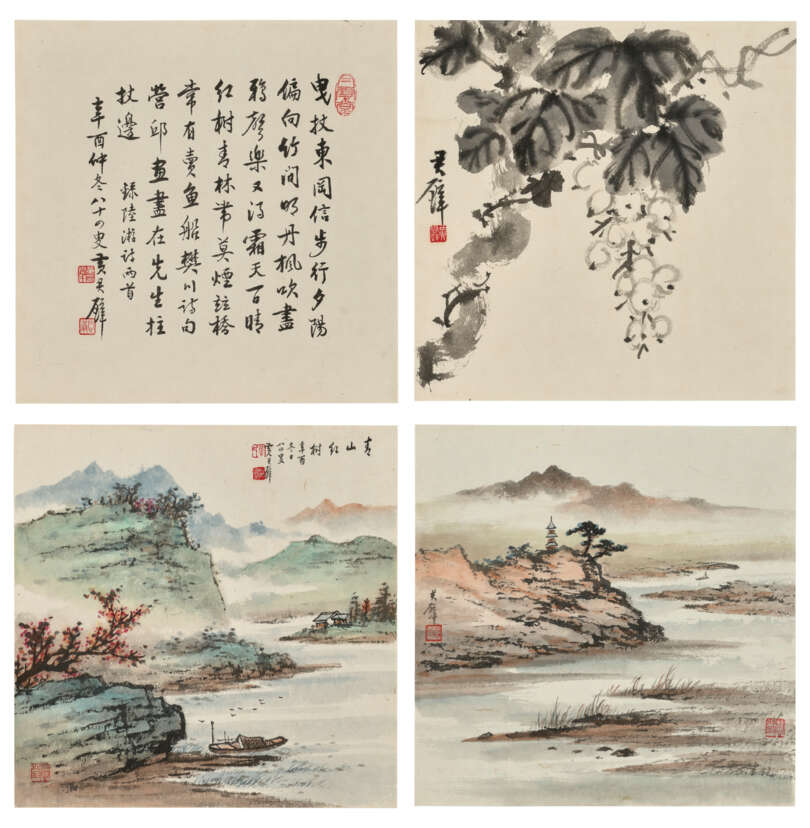 曳杖東岡信步行夕陽
偏向竹間明丹楓吹盡
鴉聲樂又得霜天一日晴
紅樹青林帶暮煙並橋
常有賣魚船樊川詩句
營邱畫盡在先生拄
杖邊 錄陸游詩兩首
辛酉仲冬八十四叟黃君璧
君璧
青山紅樹
辛酉
冬日
黃君璧
君璧